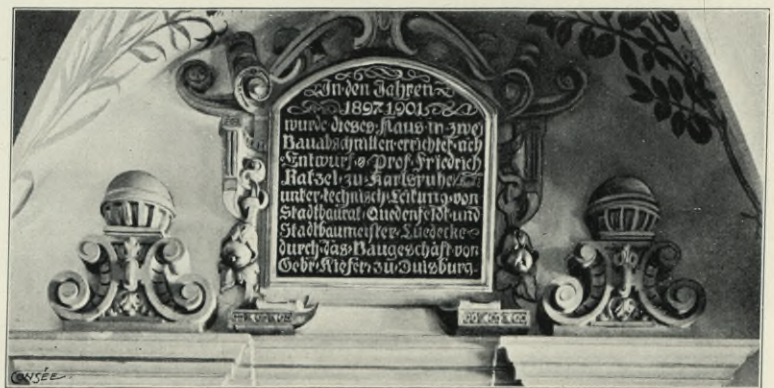 In den Jahren
1897·1901
wurde dieses Haus in zwe
Bauabschnitten errichtet nch
Entwurf v. Prof. Friedrich
Ratzel zu Karlsruhe
unter technisch Leitung von
Stadtbaurat Quedenfeldt und
Stadtbaumeister Luedecke
durch das Baugeschäft von
Gebr. Kiefer zu Duisburg.
CONSÉE